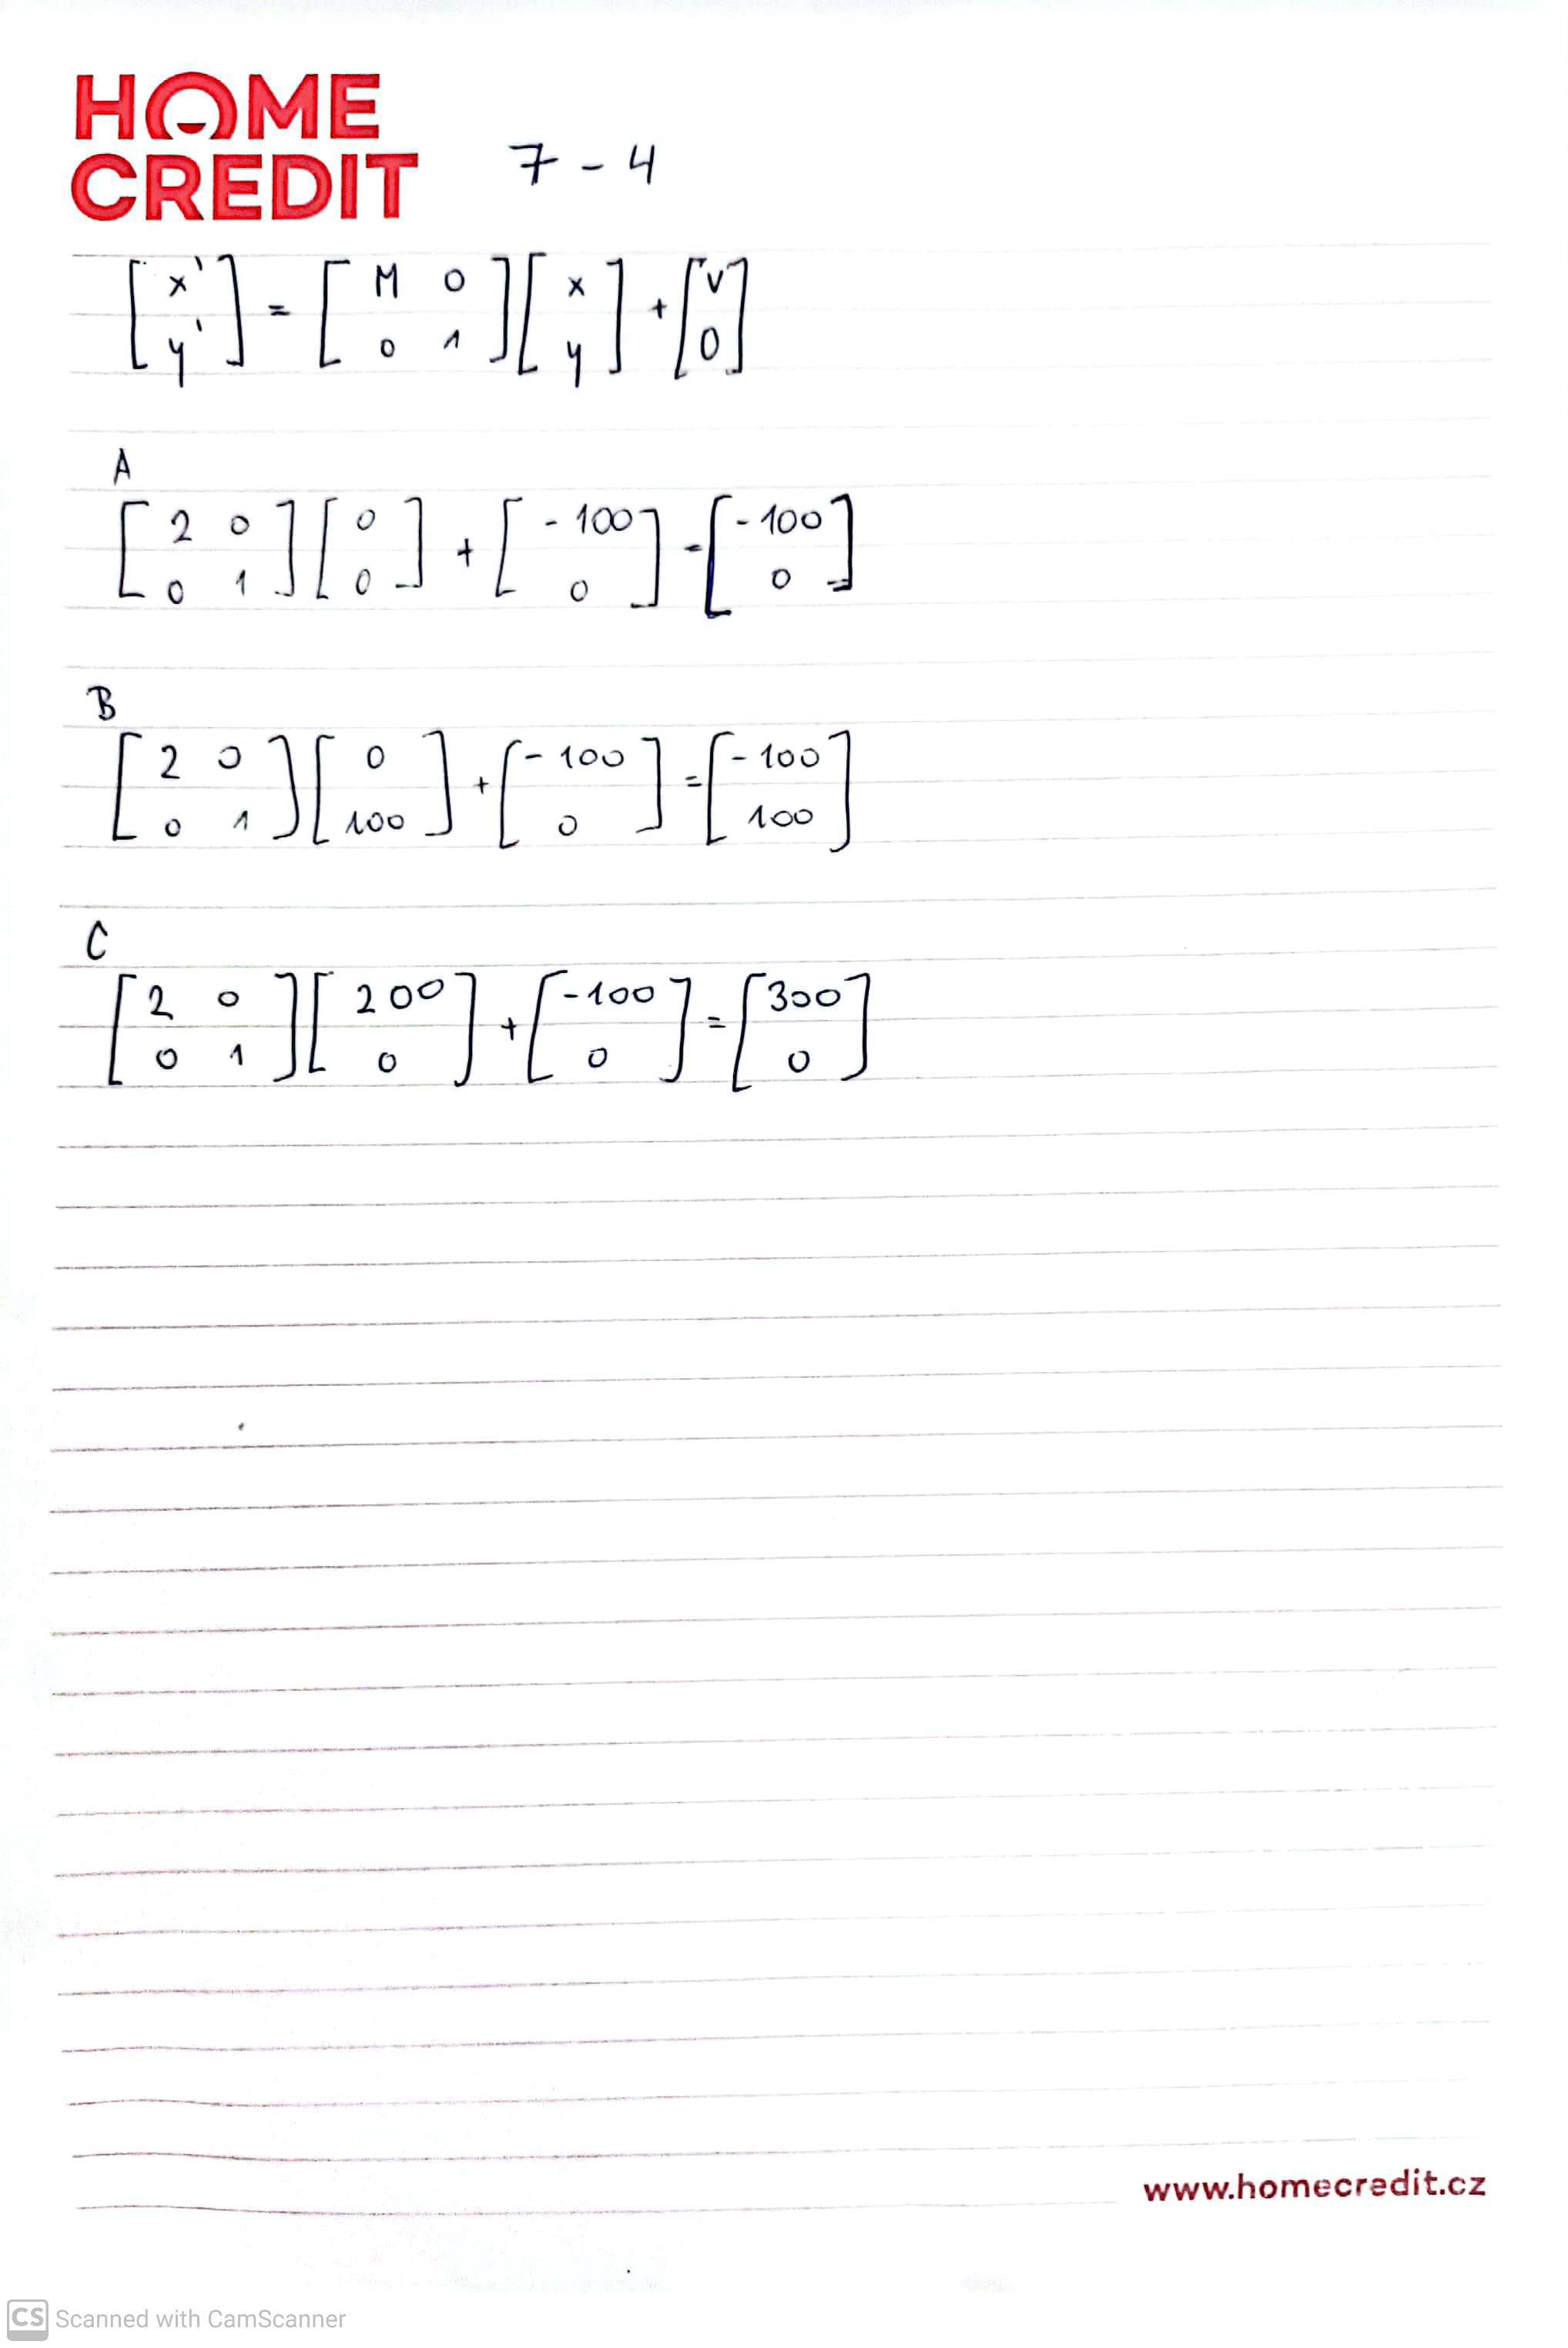 HOME
CREDIT
7 - 4
[x' y'] = [M 0 0 1][x y] + [v 0]
A
[2 0 0 1][0 0] + [-100 0] = [-100 0]
B
[2 0 0 1][0 100] + [-100 0] = [-100 100]
C
[2 0 0 1][200 0] + [-100 0] = [300 0]
www.homecredit.cz
CS Scanned with CamScanner